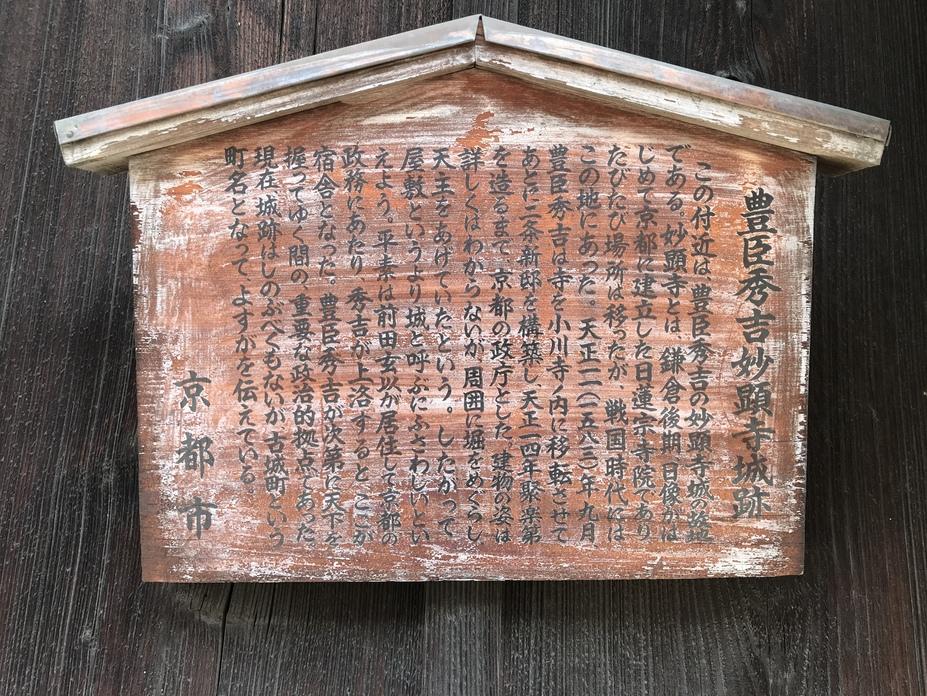 豊臣秀吉妙顕寺城跡
この付近は、豊臣秀吉の妙顕寺城の跡
である。妙顕寺とは、鎌倉後期、日像がは
じめて京都に建立した日蓮宗寺院であり
たびたび場所は移ったが、戦国時代には
この地にあった。天正一一(一五八三)年九月、
豊臣秀吉は寺を小川寺ノ内に移転させて
あとに二条新邸を構築し、天正一四年聚楽第
を造るまで、京都の政庁とした。建物の姿は
詳しくはわからないが、周囲に堀をめぐらし、
天主をあげていたという。したがって
屋敷というより城と呼ぶにふさわしいとい
えよう。平素は前田玄以が居住して京都の
政務にあたり、秀吉が上洛すると、ここが
宿舎となった。豊臣秀吉が次第に天下を
握ってゆく間の、重要な政治的拠点であった。
現在城跡はしのぶべくもないが古城町という
町名となって、よすがを伝えている。
京都市